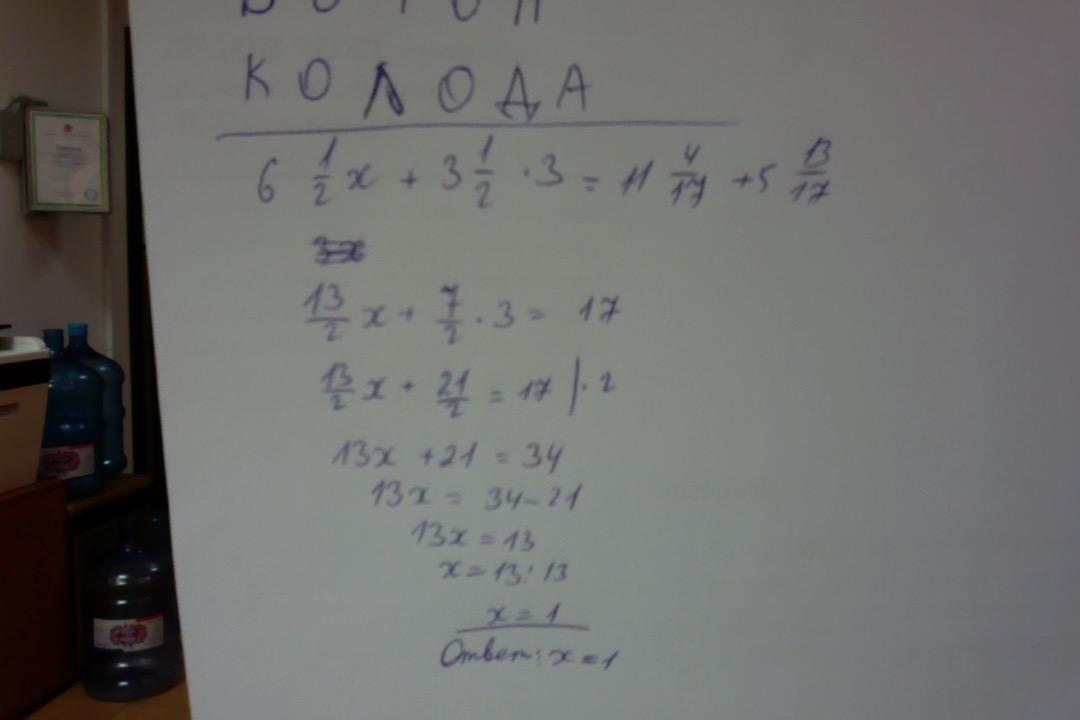 К О Л О Д А
6 1/2 x + 3 1/2 · 3 = 11 4/17 + 5 13/17
13/2 x + 7/2 · 3 = 17
13/2 x + 21/2 = 17 | · 2
13x + 21 = 34
13x = 34 - 21
13x = 13
x = 13 : 13
x = 1
Ответ: x = 1